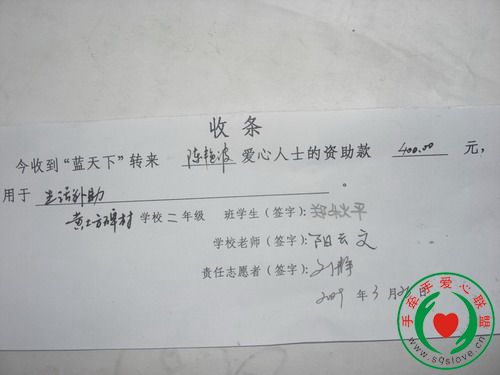 收条
今收到“蓝天下”转来 陈艳波 爱心人士的资助款 400.00 元,
用于 生活补助 。
黄土方碑村 学校 二 年级 班学生(签字):
学校老师(签字): 阳云文
责任志愿者(签字): 刘静
2009 年 3 月 日
手牵手爱心联盟
www.sqslove.cn